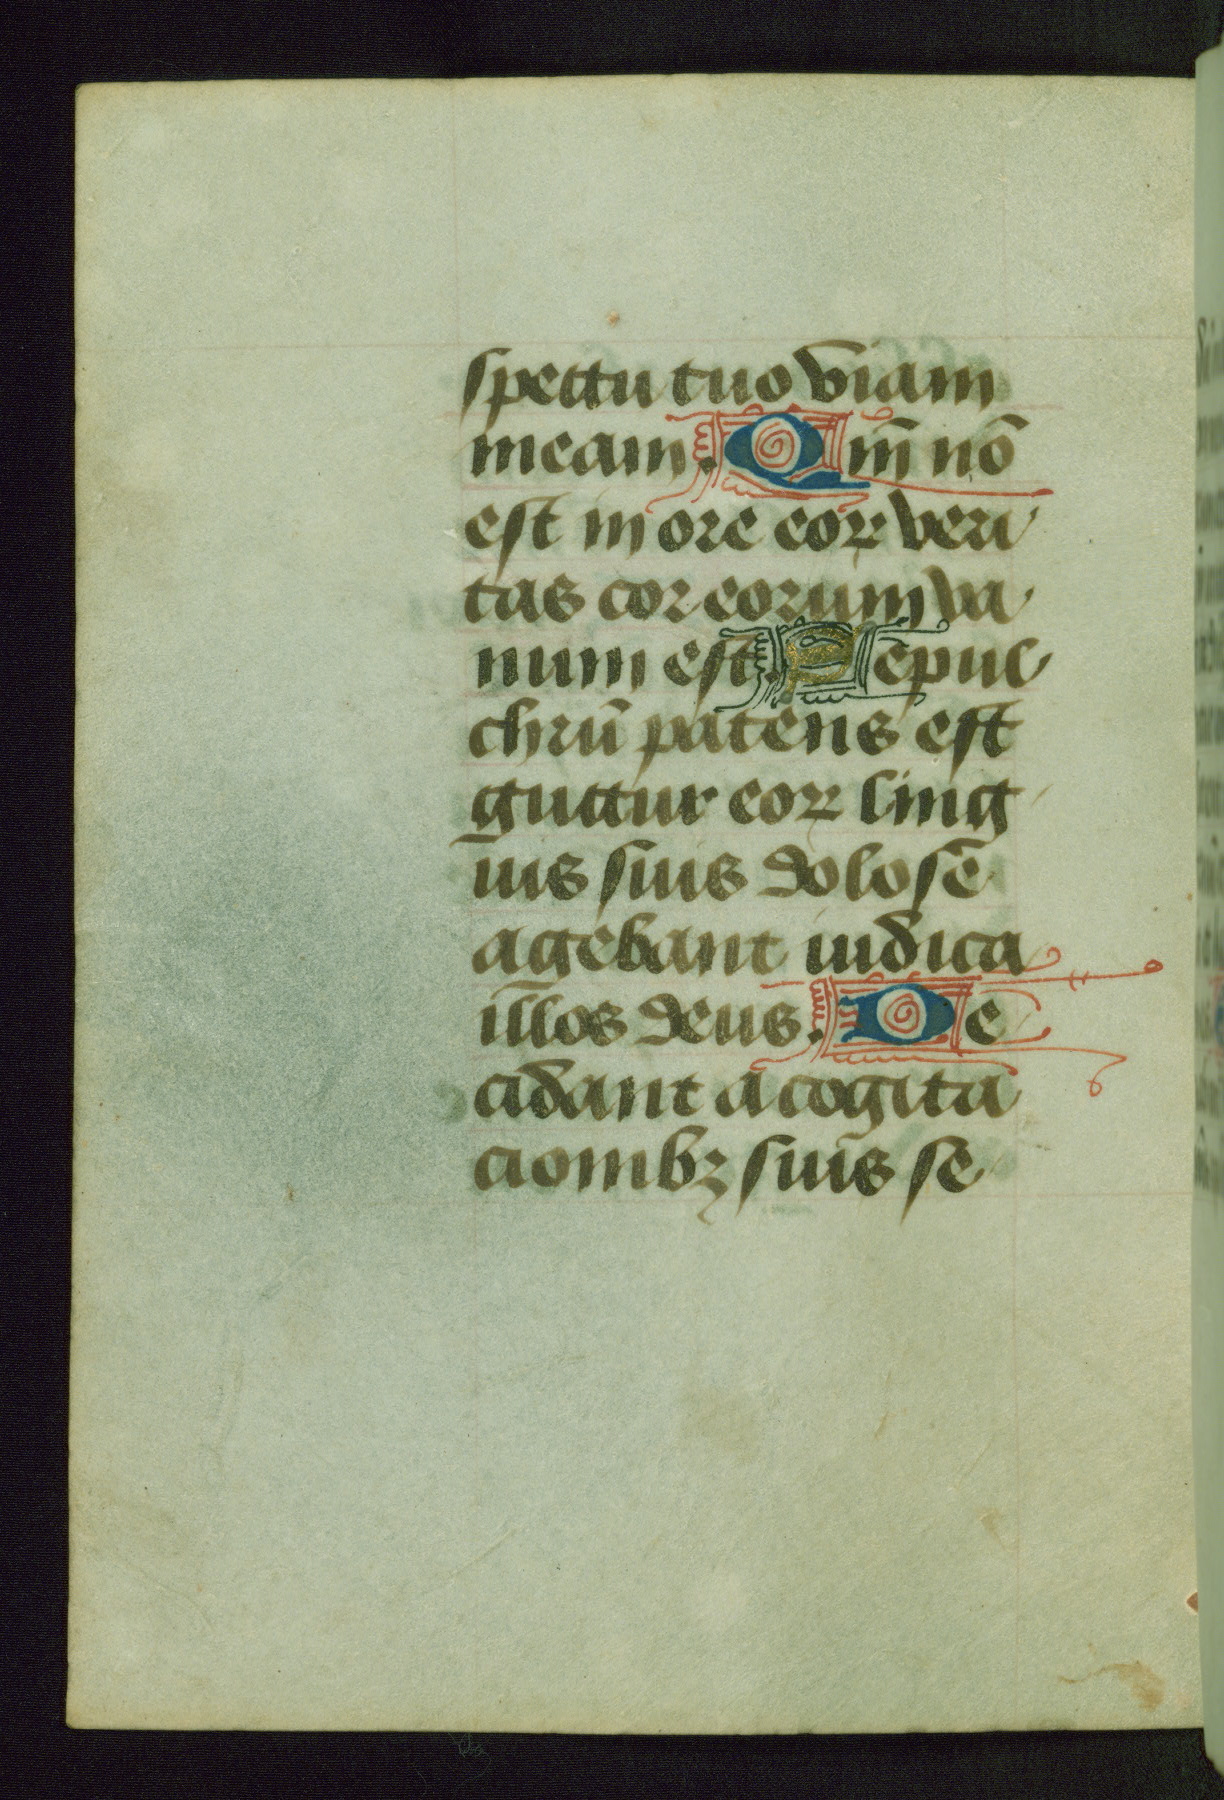 spectu tuo viam
meam. Qm̄ nō
est in ore eoꝝ veri
tas cor eorum va
num est. Sepul
chrū patens est
guttur eoꝝ ling
uis suis dolose
agebant iudica
illos deus. De
cidant a cogita
cionibꝫ suis se